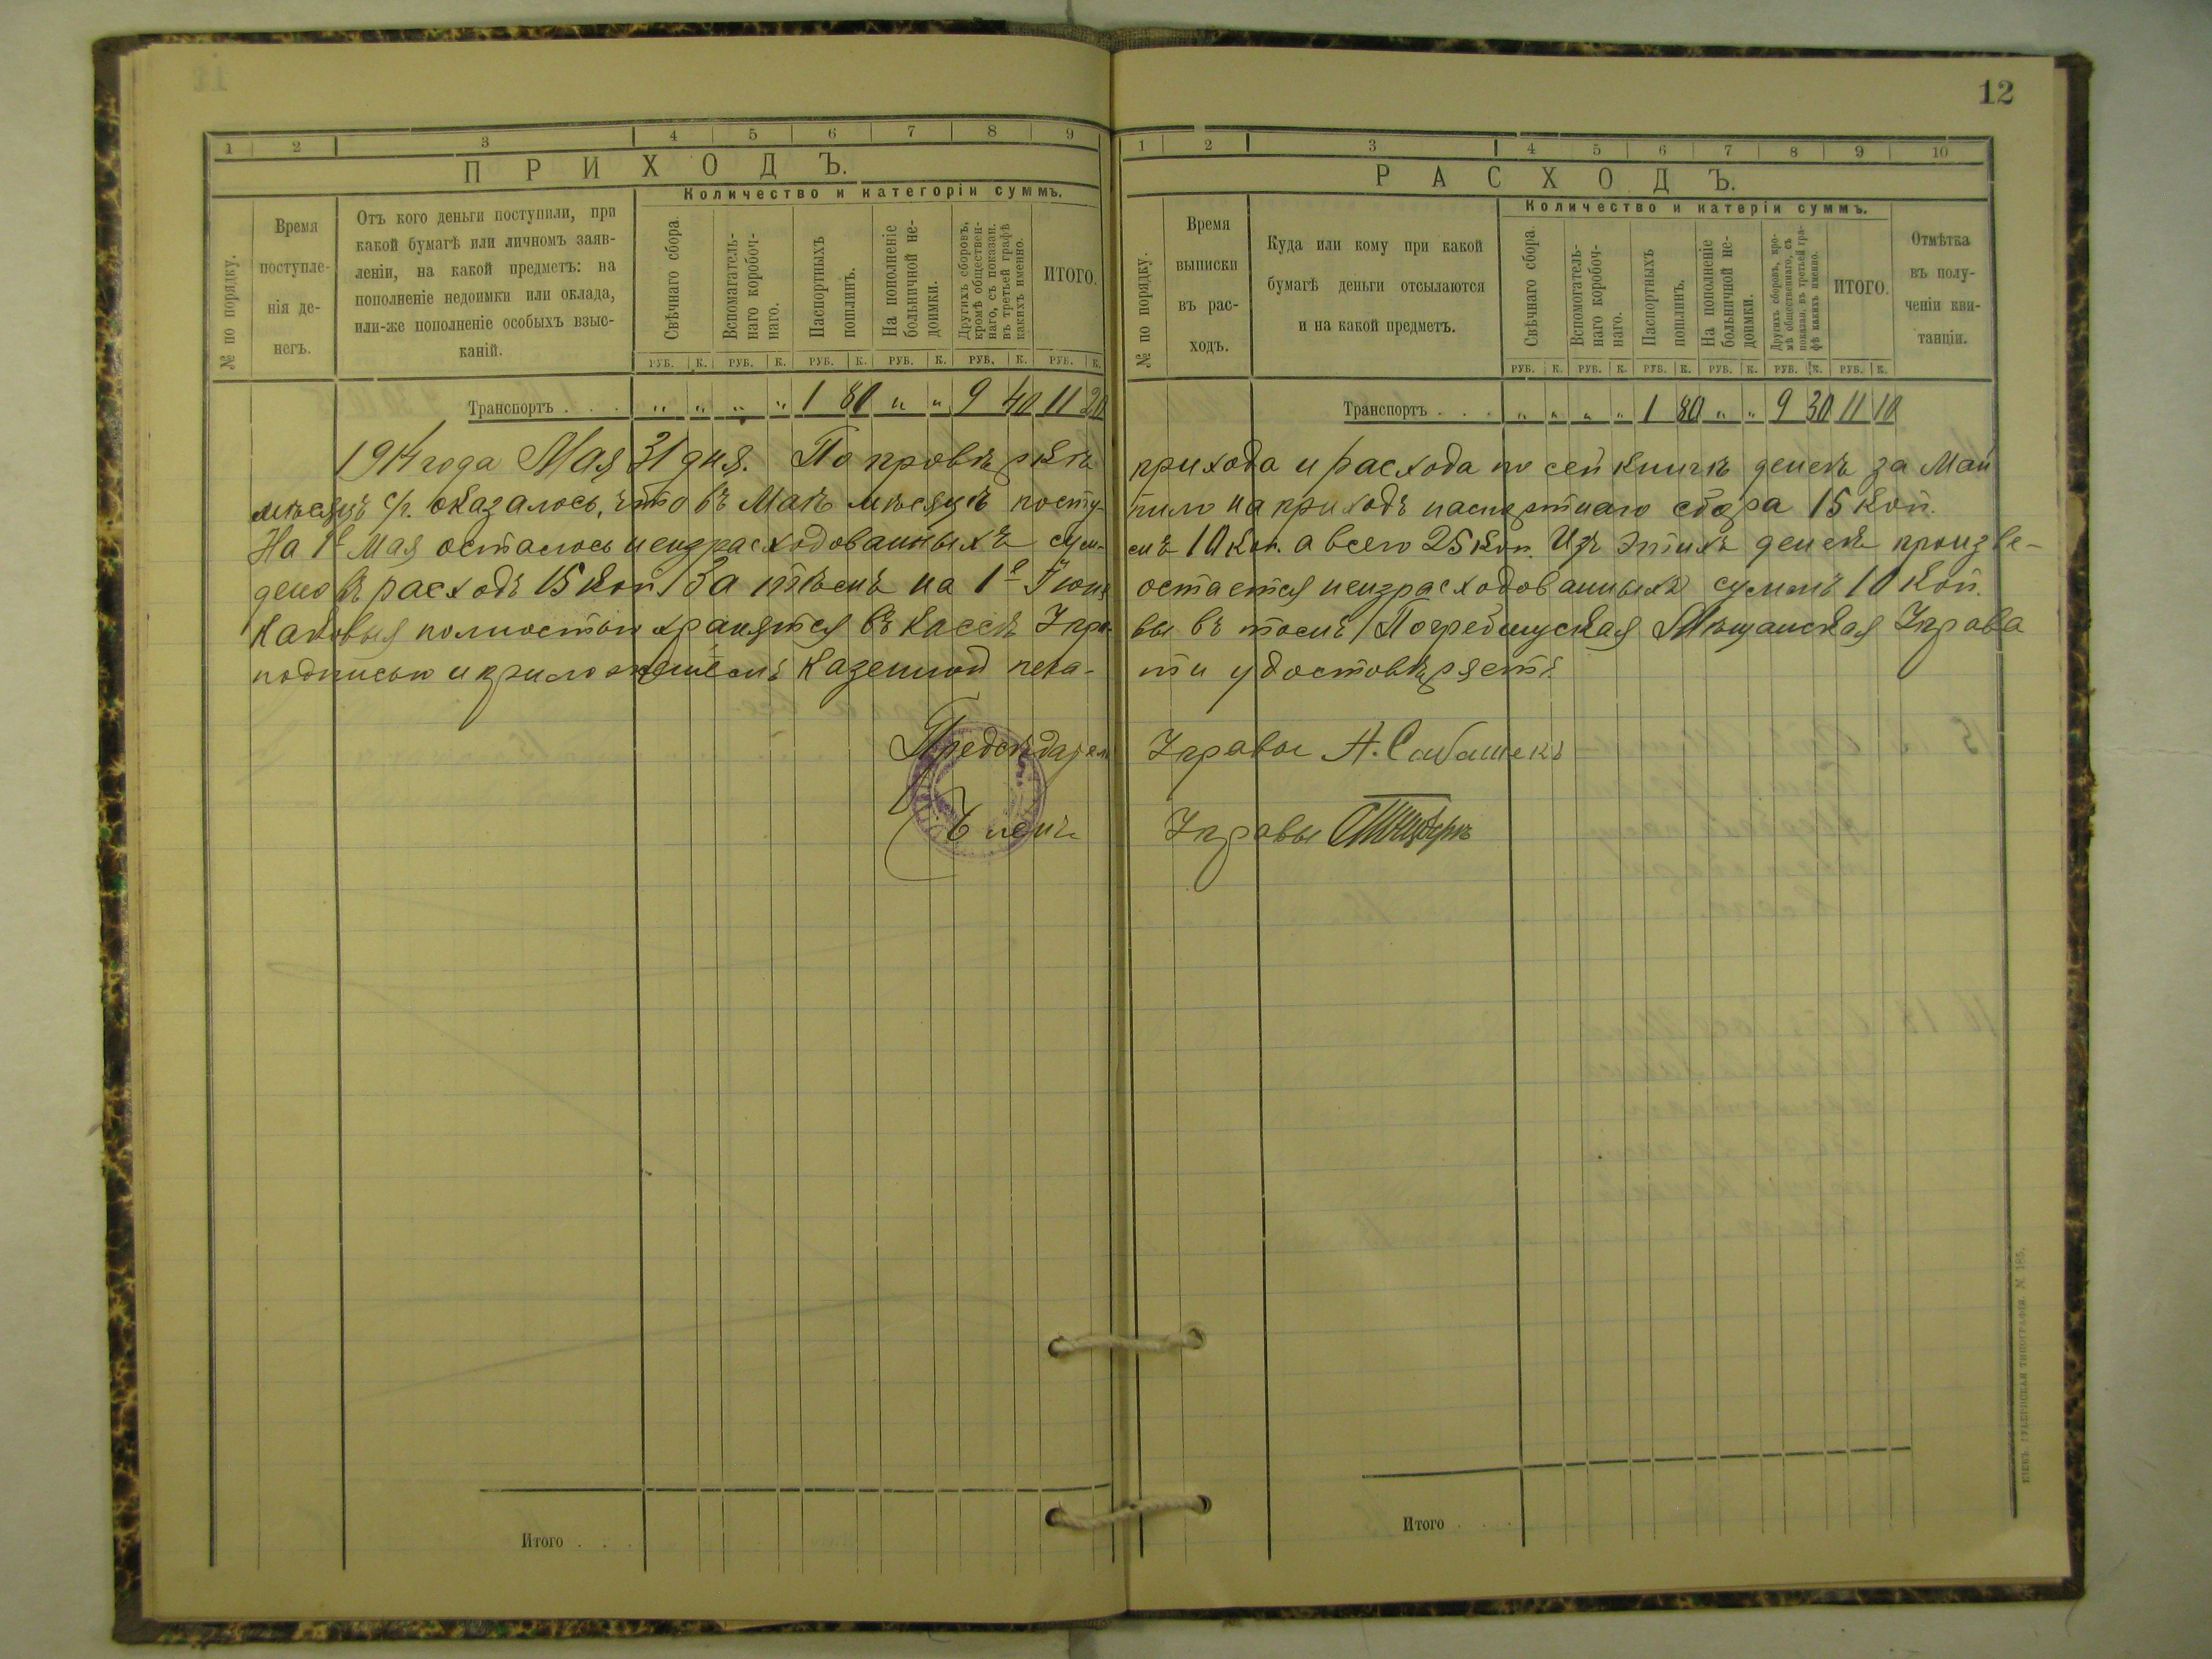 12
1 2 3 4 5 6 7 8 9
ПРИХОДЪ.
№ по порядку.
Время
поступле-
нія де-
негъ.
Отъ кого деньги поступили, при
какой бумагѣ или личномъ заяв-
леніи, на какой предметъ: на
пополненіе недоимки или оклада,
или-же пополненіе особыхъ взыс-
каній.
Количество и категоріи суммъ.
Свѣчнаго сбора.
Вспомагатель-
наго коробоч-
наго.
Паспортныхъ
пошлинъ.
На пополненіе
больничной не-
доимки.
Другихъ сборовъ,
кромѣ обществен-
наго, съ показан.
въ третьей графѣ
какихъ именно.
ИТОГО.
РУБ. К. РУБ. К. РУБ. К. РУБ. К. РУБ. К. РУБ. К.
Транспортъ . . . " " " " 1 80 " " 9 40 11 20
1 2 3 4 5 6 7 8 9 10
РАСХОДЪ.
№ по порядку.
Время
выписки
въ рас-
ходъ.
Куда или кому при какой
бумагѣ деньги отсылаются
и на какой предметъ.
Количество и катеріи суммъ.
Свѣчнаго сбора.
Вспомогатель-
наго коробоч-
наго.
Паспортныхъ
пошлинъ.
На пополненіе
больничной не-
доимки.
Другихъ сборовъ, кро-
мѣ общественнаго, съ
показан. въ третьей гра-
фѣ какихъ именно.
ИТОГО.
Отмѣтка
въ полу-
ченіи кви-
танціи.
РУБ. К. РУБ. К. РУБ. К. РУБ. К. РУБ. К. РУБ. К.
Транспортъ . . . " " " " 1 80 " " 9 30 11 10
1914 года Мая 31 дня. По провѣркѣ прихода и расхода по сей книгѣ денегъ за Май
мѣсяцъ с/г. оказалось, что въ Маѣ мѣсяцѣ посту- пило на приходъ паспортнаго сбора 15 коп.
На 1е Мая осталось неизрасходованныхъ сум- мъ 10 коп. а всего 25 коп. Изъ этихъ денегъ произве-
дено въ расходъ 15 коп. За тѣмъ на 1е Іюня остается неизрасходованныхъ суммъ 10 коп.
Каковыя полностью хранятся въ кассѣ Упра- вы въ томъ Погребищская Мѣщанская Управа
подписью и приложеніемъ казенной печа- ти удостовѣряетъ.
Предсѣдатель Управы
Членъ Управы
Итого . . .
Итого . . .
КІЕВЪ. ГУБЕРНСКАЯ ТИПОГРАФІЯ. № 185.